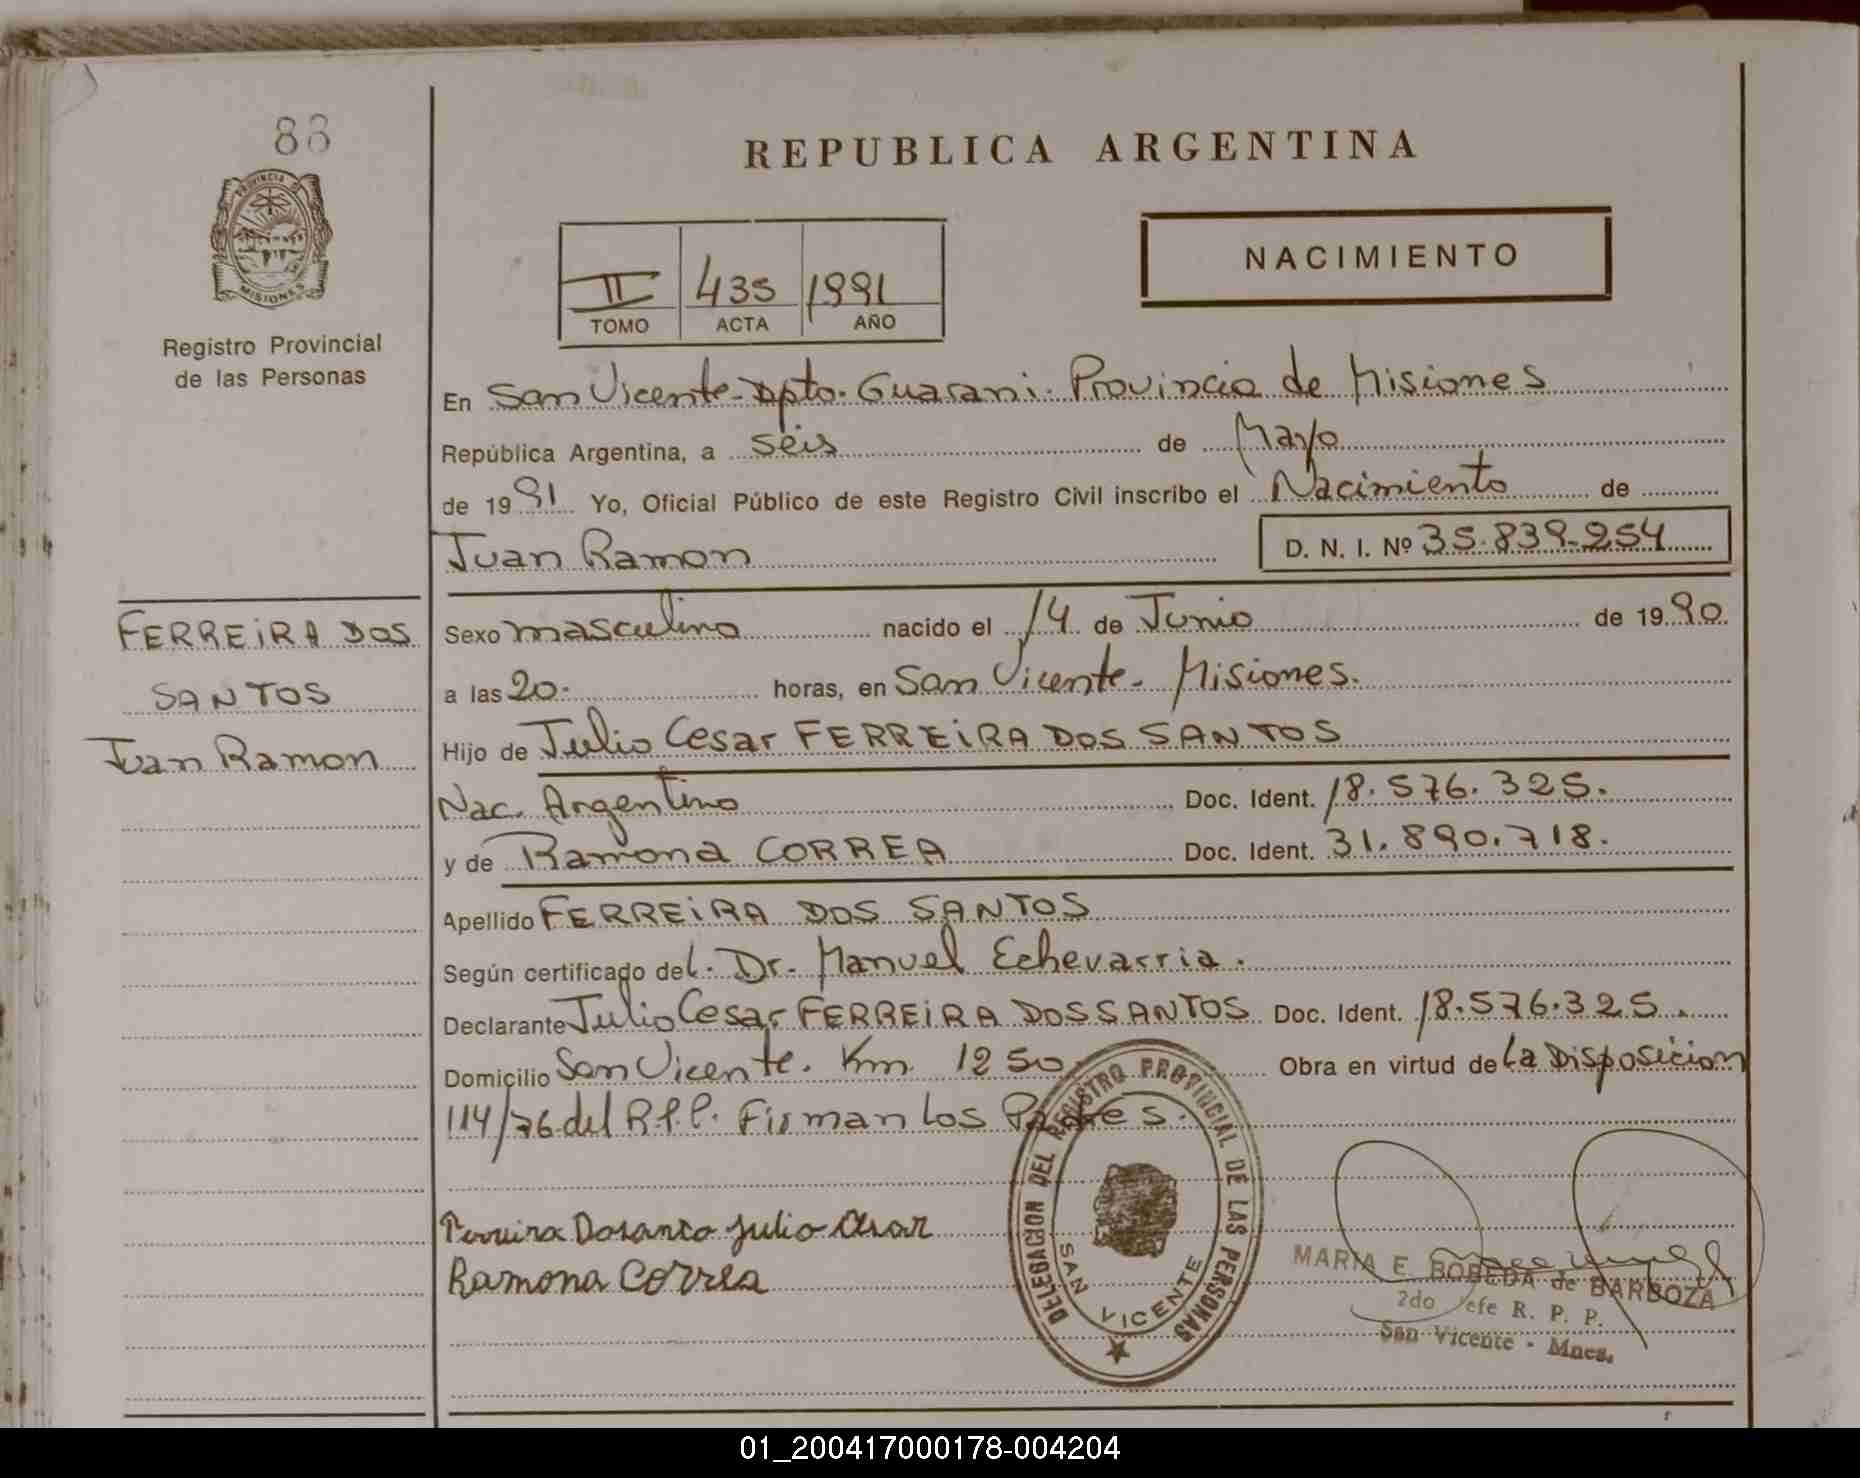 88
REPUBLICA ARGENTINA
PROVINCIA DE
MISIONES
Registro Provincial
de las Personas
NACIMIENTO
II 435 1991
TOMO ACTA AÑO
En San Vicente - Dpto. Guarani. Provincia de Misiones
República Argentina, a seis de Mayo
de 1991 Yo, Oficial Público de este Registro Civil inscribo el Nacimiento de
Juan Ramon D. N. I. Nº 35.839.254
FERREIRA DOS
SANTOS
Juan Ramon
Sexo masculino nacido el 14 de Junio de 1990
a las 20. horas, en San Vicente - Misiones.
Hijo de Julio Cesar FERREIRA DOS SANTOS
Nac. Argentino Doc. Ident. 18.576.325.
y de Ramona CORREA Doc. Ident. 31.890.718.
Apellido FERREIRA DOS SANTOS
Según certificado del. Dr. Manuel Echevarria.
Declarante Julio Cesar FERREIRA DOS SANTOS Doc. Ident. 18.576.325.
Domicilio San Vicente. Km. 1250 Obra en virtud de La Disposicion
114/76 del R.P.P. Firman Los Padres.
Julio
Ramona Correa
DELEGACION DEL REGISTRO PROVINCIAL DE LAS PERSONAS
SAN VICENTE
MARIA E. BOBEDA de BARBOZA
2do Jefe R. P. P.
San Vicente - Mnes.
01_200417000178-004204